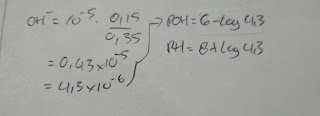 OH⁻ = 10⁻⁵ . 0,15/0,35
= 0,43 x 10⁻⁵
= 4,3 x 10⁻⁶
POH = 6 - log 4,3
PH = 8 + log 4,3